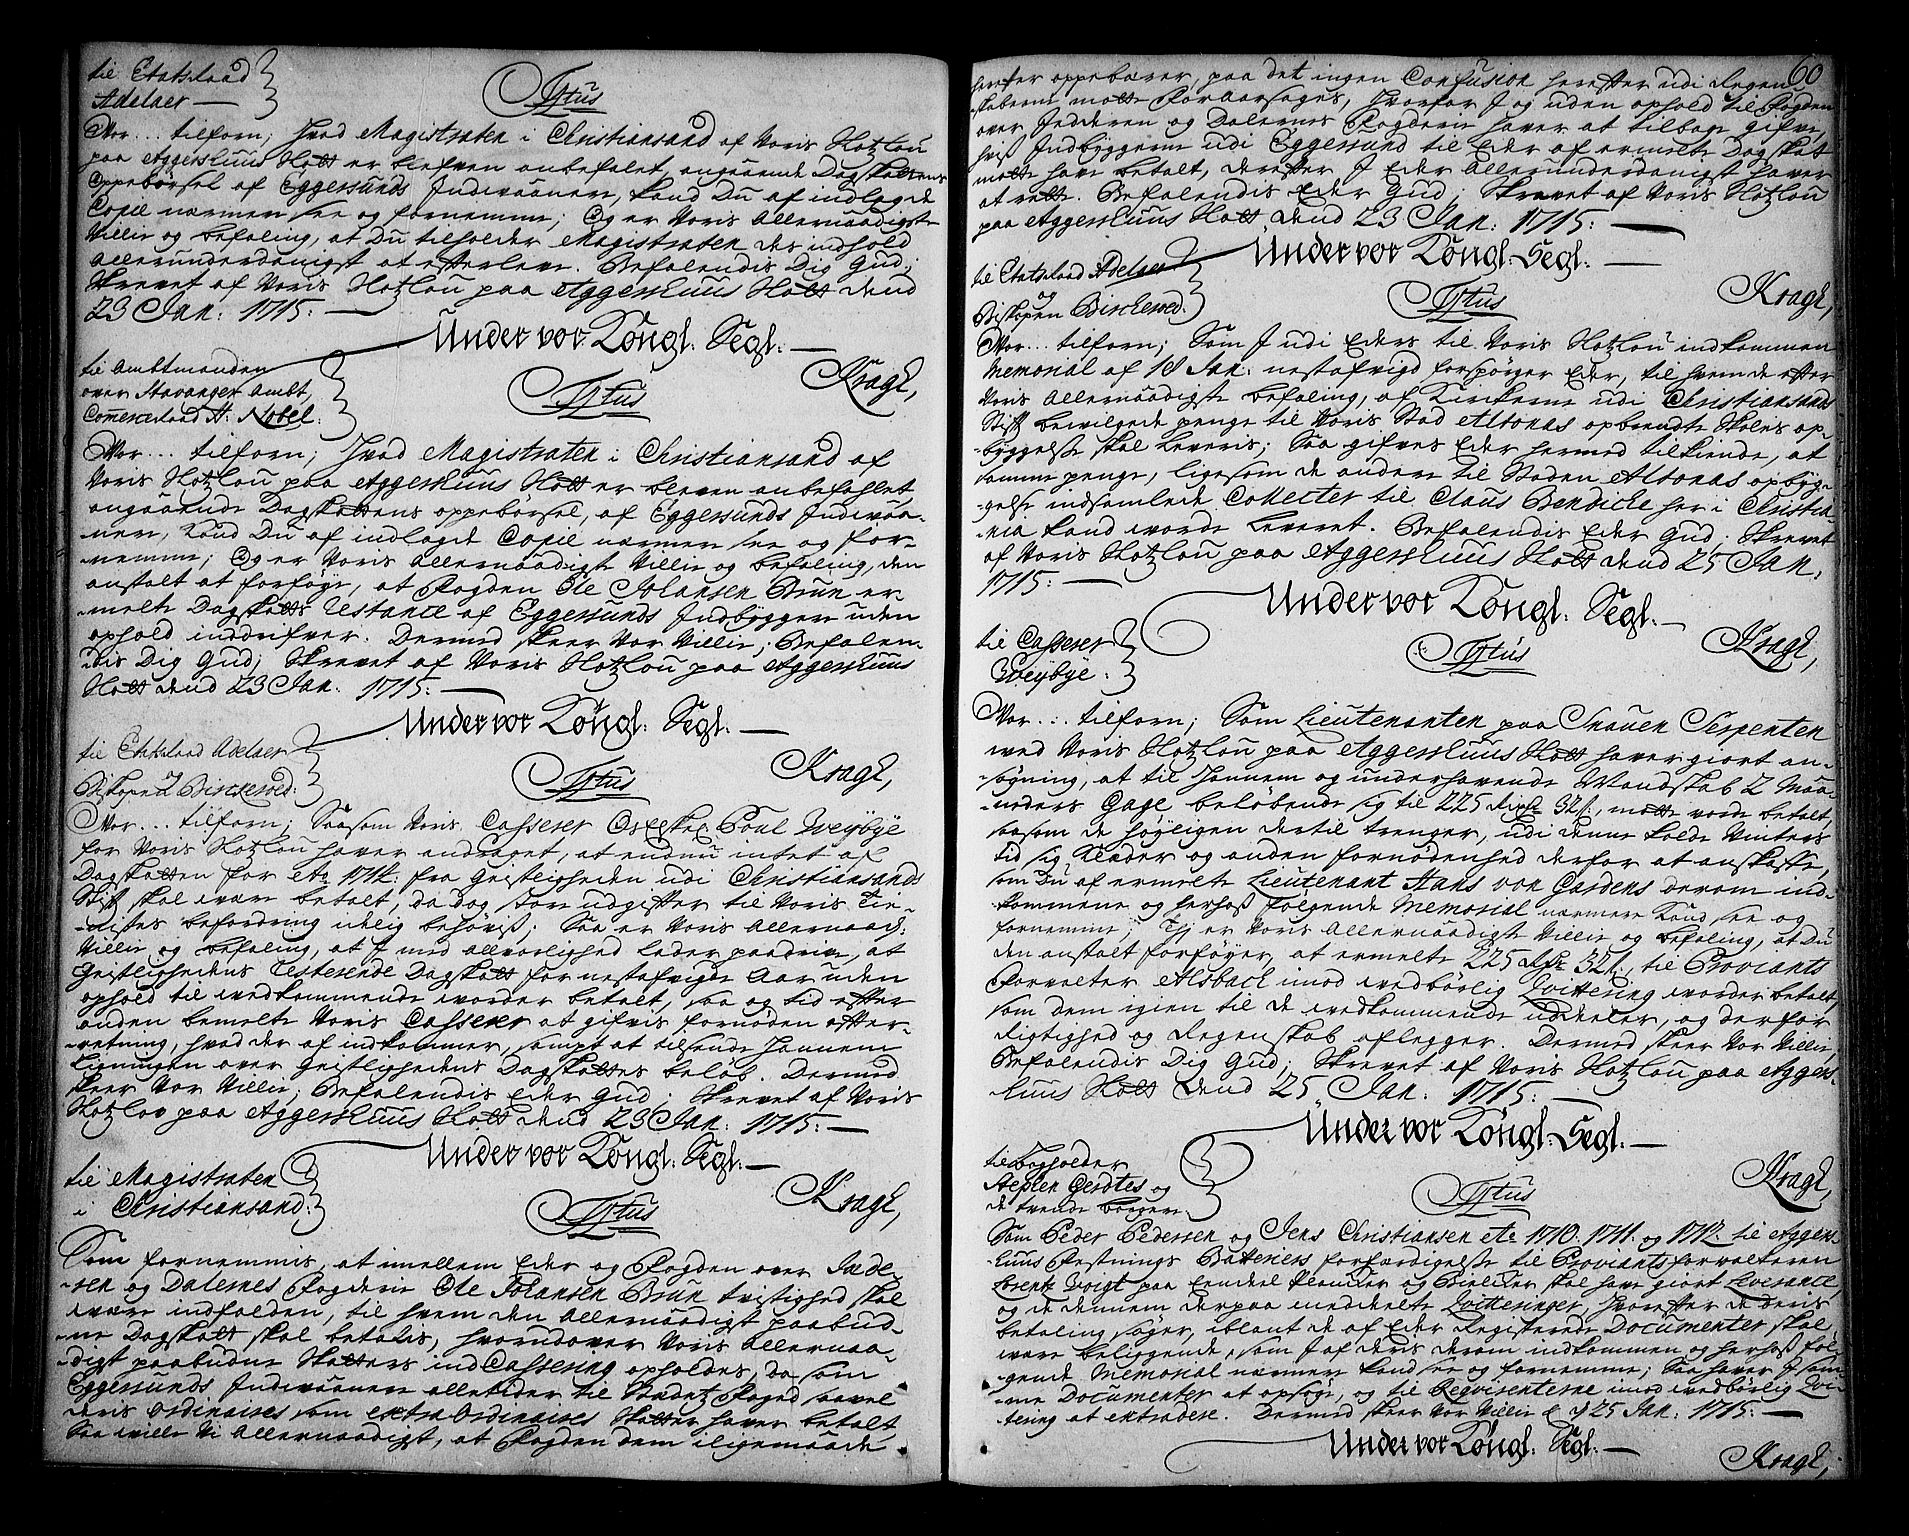 til Etatsraad
Adelaer —
Tÿtus
Vor... tilforn; Hvad Magistraten i Christiansand af Voris Slotzlou
paa Aggershuus Slott er blefven anbefalet, angaaende Dagskattens
Oppebörsel af Eggersunds Indvaanere, kand Du af indlagde
Copie nærmere see og fornemme; Og er Voris Allernaadigste
Villie og befaling, at Du tilholder Magistraten des indhold
allerunderdanigst at efterleve. Befalendis Dig Gud;
Skrevet af Voris Slotzlou paa Aggershuus Slott dend
23 Jan: 1715: —
Under vor Köngl: Segl: —
Kragh,
til Ambtmanden
over Stavanger Ambt,
Commerceraad H: Nobel:
Tÿtus
Vor... tilforn; Hvad Magistraten i Christiansand af
Voris Slotzlou paa Aggershuus Slott er bleven anbefallet
angaaende Dagskattens oppebörsel, af Eggersunds Indvaa-
nere, kand Du af indlagde Copie nærmere see og for-
nemme; Og er Voris Allernaadigste Villie og befaling, den
anstalt at forföye, at Fogden Ole Johansen Brun er-
melte Dagskatts Restance af Eggersunds Indbyggere uden
ophold inddrifver. Dermed skeer Vor Villie; Befalen-
dis Dig Gud; Skrevet af Voris Slotzlou paa Aggershuus
Slott dend 23 Jan: 1715: —
Under vor Köngl: Segl: —
Kragh,
til Etatsraad Adelaer
og
Biskopen Birckerod:
Tÿtus
Vor... tilforn; Saasom Voris Casserer Poul Weybye
for Voris Slotzlou haver andraget, at endnu intet af
Dagskatten for aar 1714: fra Geistligheden udi Christiansands
Stift skal være betalt, da dog store udgifter til Voris Tie-
nistes befordring idelig behövis; Saa er Voris Allernaad:
Villie og befaling, at I med alvorlighed lader paadrive, at
Geistlighedens resterende Dagskatt for nestafvigte Aar uden
ophold til vedkommende vorder betalt, saa og tid efter
anden bemelte Voris Casserer at gifvis fornöden efter-
retning, hvad der af indkommer, sampt at tilsende Hannem
Ligningen over Geistlighedens Dagskattes belöb. Dermed
skeer Vor Villie; Befalendis Eder Gud; Skrevet af Voris
Slotzlou paa Aggershuus Slott dend 23 Jan: 1715: —
Under vor Köngl: Segl: —
Kragh,
til Magistraten
i Christiansand:
Tÿtus
Som fornemmis, at imellem Eder og Fogden over Jæde-
ren og Dalernes Fogderie Ole Johansen Brun tvistighed skal
være indfalden, til hvem den Allernaadigst paabud-
ne Dagskatt skal betalis, hvorudover Voris Allernaa-
digst paabudne Skatters indCassering opholdes, da som
Eggersunds Indvaanere alletider til Stædetz Foged saavel
deris ordinaires som extraOrdinaires Skatter haver betalt
Saa ville Vi Allernaadigst, at Fogden dem iligemaade
60
herefter oppebærer, paa det ingen Confusion herefter udi Regen-
skaberne motte foraarsages, hvorfor I og uden ophold til Fogden
over Jedderen og Dalernes Fogderie haver at tilbage gifve,
hviss Indbyggerne udi Eggersund til Eder af ermelte Dagskat
motte have betalt, derefter I Eder Allerunderdanigst haver
at rette. Befalendis Eder Gud; Skrevet af Voris Slotzlou
paa Aggershuus Slott dend 23 Jan: 1715: —
Under vor Köngl: Segl: —
Kragh,
til Etatsraad Adelaer
og
Biskopen Birckerod:
Tÿtus
Vor... tilforn; Som I udi Eders til Voris Slotzlou indkommen
Memorial af 10 Jan: nestafvigt forspörger Eder, til hvem de efter
Voris Allernaadigste befaling, af Kirckerne udi Christiansands
Stift bevilgede penge til Voris Stad Altonas opbrendte Skoles op-
byggelse skal Leveris; Saa gifves Eder hermed tilkiende, at
samme penge, ligesom de andere til Staden Altonas opbyg-
gelse indsamlede Collecter til Claus Bendicke her i Christia-
nia kand vorde Leveret. Befalendis Eder Gud; Skrevet
af Voris Slotzlou paa Aggershuus Slott dend 25 Jan:
1715: —
Under vor Köngl: Segl: —
Kragh,
til Casserer
Weybye:
Tÿtus
Vor... tilforn; Som Lieutenanten paa Snauen Serpenten
ved Voris Slotzlou paa Aggershuus Slott haver giort an-
sögning, at til Hannem og underhavende Mandskab 2 Maa-
neders Gage belöbende sig til 225 Rdr 32 s, motte vorde betalt,
som de höyligen dertil trenger, udi denne kolde Vinters
tid sig klæder og anden fornödenhed derfor at anskaffe,
som Du af ermelte Lieutenant Hans von Gardens derom ind-
kommene og herhoss fölgende Memorial nærmere kand see og
fornemme; Thj er Voris Allernaadigste Villie og befaling, at Du
den anstalt forföyer, at ermelte 225 Rdr 32 s, til Proviants
Forvalter Alsback imod vedbörlig Qvittering vorder betalt,
som dem igien til de vedkommende uddeeler, og derfor
Rigtighed og Regenskab aflegger. Dermed skeer Vor Villie,
Befalendis Dig Gud; Skrevet af Voris Slotzlou paa Aggers-
huus Slott dend 25 Jan: 1715: —
Under vor Köngl: Segl: —
Kragh,
til Bogholder
Stephen Gerdtes og
de tvende borgere
Tÿtus
Som Peder Pedersen og Jens Christiansen aar 1710. 1711. og 1712. til Aggers-
huus Festnings Batteriers forfærdigelse til Proviantsforvalteren
Lorentz Voigt paa endeel Plancker og Bielcker skal have giort Leverance
og de dennem derpaa meddeelte Qvitteringer, hvorefter de deris
betaling söger, iblant de af Eder Registerede Documenter skal
være beliggende, som I af deris derom indkommen og herhoss föl-
gende Memorial nærmere kand see og fornemme; Saa haver I sam-
me Documenter at opsöge, og til Reqvirenterne imod vedbörlig Qvit-
tering at extradere. Dermed skeer Vor Villie 25 Jan: 1715: —
Under vor Köngl: Segl: —
Kragh,